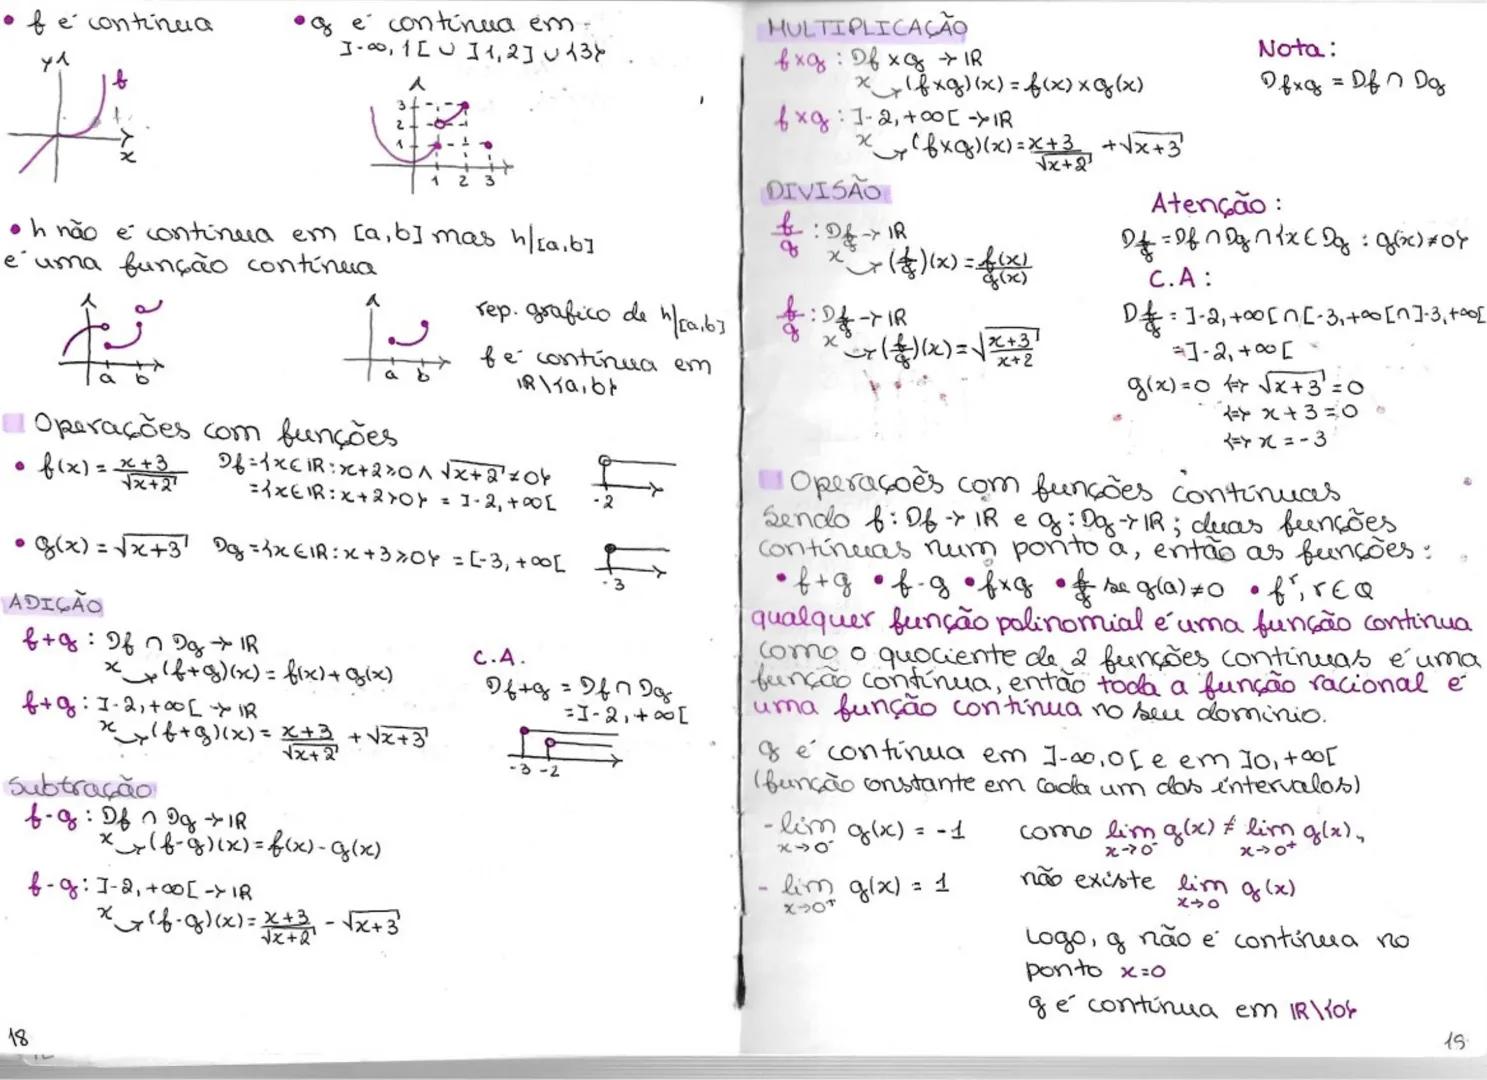 • f é contínua
• g é contínua em
]-∞,1[ ∪ ]1,2] ∪ {3}
y
f
x
3
2
1
1 2 3
• h não é contínua em [a,b] mas h|[a,b]
é uma função contínua
a b
a b
rep. grafico de h|[a,b]
f é contínua em
IR\{a,b}
Operações com funções
• f(x) = x+3/√x+2 Df={x∈IR:x+2≥0 ∧ √x+2≠0}
={x∈IR:x+2>0} = ]-2,+∞[
-2
• g(x) = √x+3 Dg={x∈IR:x+3≥0} = [-3,+∞[
-3
ADIÇÃO
f+g : Df ∩ Dg → IR
x → (f+g)(x) = f(x)+g(x)
f+g : ]-2,+∞[ → IR
x → (f+g)(x) = x+3/√x+2 + √x+3
C.A.
Df+g = Df ∩ Dg
= ]-2,+∞[
-3 -2
Subtração
f-g : Df ∩ Dg → IR
x → (f-g)(x) = f(x)-g(x)
f-g : ]-2,+∞[ → IR
x → (f-g)(x) = x+3/√x+2 - √x+3
18
MULTIPLICAÇÃO
f×g : Df×g → IR
x → (f×g)(x) = f(x)×g(x)
Nota:
Df×g = Df ∩ Dg
f×g : ]-2,+∞[ → IR
x → (f×g)(x) = x+3/√x+2 + √x+3
DIVISÃO
f/g : Df/g → IR
x → (f/g)(x) = f(x)/g(x)
Atenção:
Df/g = Df ∩ Dg ∩ {x∈Dg : g(x)≠0}
C.A:
f/g : Df/g → IR
x → (f/g)(x) = √x+3/x+2
Df/g = ]-2,+∞[ ∩ [-3,+∞[ ∩ ]-3,+∞[
= ]-2,+∞[
g(x)=0 ⇔ √x+3 = 0
⇔ x+3=0
⇔ x=-3
Operações com funções contínuas
Sendo f: Df → IR e g: Dg → IR; duas funções
contínuas num ponto a, então as funções:
• f+g • f-g • f×g • f/g se g(a)≠0 • fʳ, r∈Q
qualquer função polinomial é uma função contínua
como o quociente de 2 funções contínuas é uma
função contínua, então toda a função racional é
uma função contínua no seu domínio.
g é contínua em ]-∞,0[ e em ]0,+∞[
(função onstante em cada um dos intervalos)
- lim g(x) = -1
x→0⁻
- lim g(x) = 1
x→0⁺
como lim g(x) ≠ lim g(x),
x→0⁻ x→0⁺
não existe lim g(x)
x→0
Logo, g não é contínua no
ponto x=0
g é contínua em IR\{0}
19